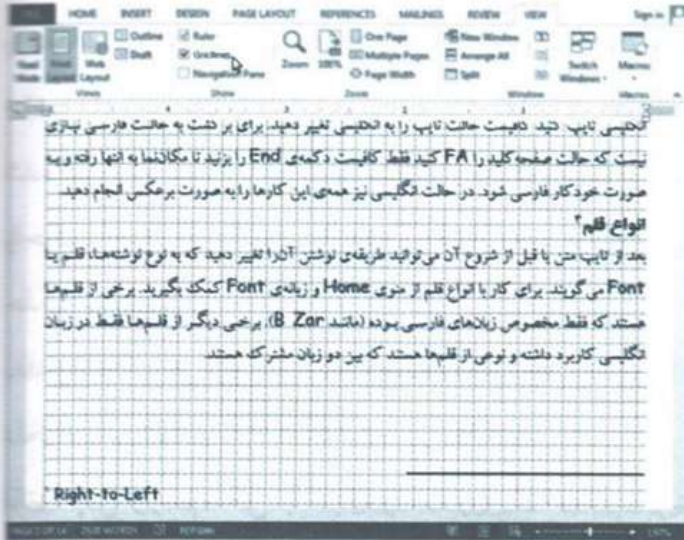 HOME INSERT DESIGN PAGE LAYOUT REFERENCES MAILINGS REVIEW VIEW Sign in
Outline
Draft
Web Layout
Views
Ruler
Gridlines
Navigation Pane
Show
Zoom
100%
One Page
Multiple Pages
Page Width
Zoom
New Window
Arrange All
Split
Switch Windows
Window
Macros
Macros
انگلیسی تایپ کنید کافیست حالت تایپ را به انگلیسی تغییر دهید. برای برگشت به حالت فارسی نیازی
نیست که حالت صفحه کلید را FA کنید فقط کافیست دکمه‌ی End را بزنید تا مکان‌نما به انتها رفته و به
صورت خودکار فارسی شود. در حالت انگلیسی نیز همه‌ی این کارها را به صورت برعکس انجام دهید.
انواع قلم
بعد از تایپ متن یا قبل از شروع آن می‌توانید طریقه‌ی نوشتن آن را تغییر دهید که به نوع نوشته‌ها، قلم یا
Font می‌گویند. برای کار با انواع قلم از منوی Home و زبانه‌ی Font کمک بگیرید. برخی از قلم‌ها
هستند که فقط مخصوص زبان‌های فارسی بوده (مانند B Zar)، برخی دیگر از قلم‌ها فقط در زبان
انگلیسی کاربرد داشته و نوعی از قلم‌ها هستند که بین دو زبان مشترک هستند.
Right-to-Left